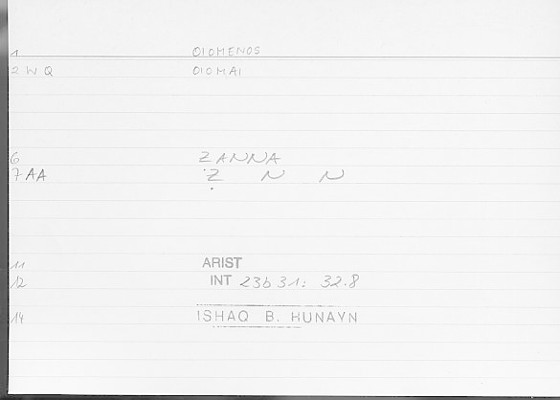 1 OIOMENOS
2 W Q OIOMAI
6 ZANNA
7 AA Z N N
11 ARIST
12 INT 23b31: 32.8
14 ISHAQ B. HUNAYN